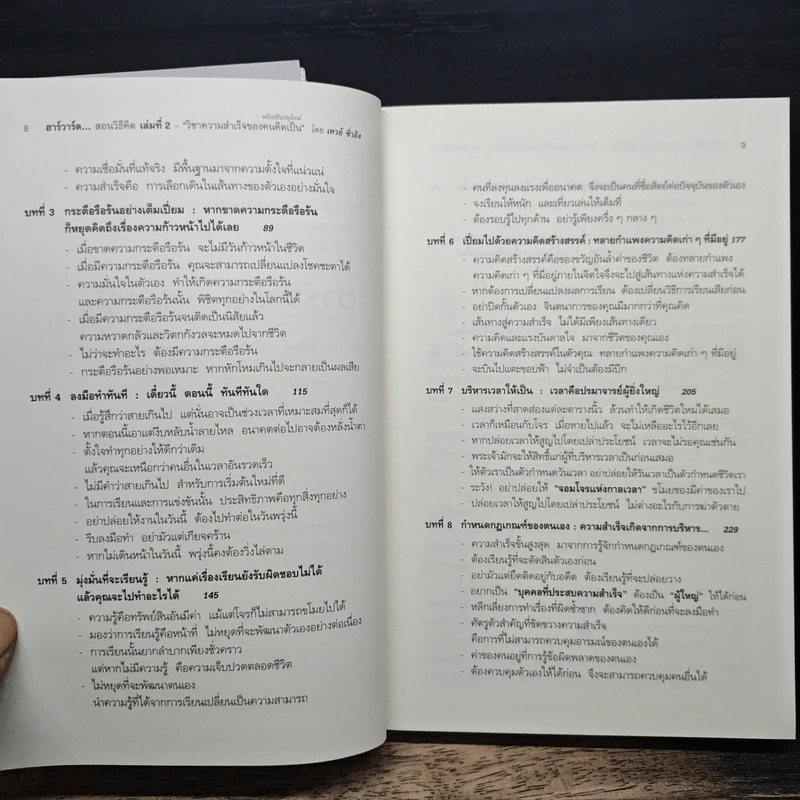 8 ฮาร์วาร์ด... สอนวิธีคิด เล่มที่ 2 - "วิชาความสำเร็จของคนคิดเป็น" ฉบับปรับปรุงใหม่ โดย เหวย์ ซิ่วอิง
- ความเชื่อมั่นที่แท้จริง มีพื้นฐานมาจากความตั้งใจที่แน่วแน่
- ความสำเร็จคือ การเลือกเดินในเส้นทางของตัวเองอย่างมั่นใจ
บทที่ 3 กระตือรือร้นอย่างเต็มเปี่ยม : หากขาดความกระตือรือร้น
ก็หยุดคิดถึงเรื่องความก้าวหน้าไปได้เลย 89
- เมื่อขาดความกระตือรือร้น จะไม่มีวันก้าวหน้าในชีวิต
- เมื่อมีความกระตือรือร้น คุณจะสามารถเปลี่ยนแปลงโชคชะตาได้
- ความมั่นใจในตัวเอง ทำให้เกิดความกระตือรือร้น
และความกระตือรือร้นนั้น พิชิตทุกอย่างในโลกนี้ได้
- เมื่อมีความกระตือรือร้นจนติดเป็นนิสัยแล้ว
ความหวาดกลัวและวิตกกังวลจะหมดไปจากชีวิต
- ไม่ว่าจะทำอะไร ต้องมีความกระตือรือร้น
- กระตือรือร้นอย่างพอเหมาะ หากหักโหมเกินไปจะกลายเป็นผลเสีย
บทที่ 4 ลงมือทำทันที : เดี๋ยวนี้ ตอนนี้ ทันทีทันใด 115
- เมื่อรู้สึกว่าสายเกินไป แต่นั่นอาจเป็นช่วงเวลาที่เหมาะสมที่สุดก็ได้
- หากตอนนี้เอาแต่งีบหลับน้ำลายไหล อนาคตต่อไปอาจต้องหลั่งน้ำตา
- ตั้งใจทำทุกอย่างให้ดีกว่าเดิม
แล้วคุณจะเหนือกว่าคนอื่นในเวลาอันรวดเร็ว
- ไม่มีคำว่าสายเกินไป สำหรับการเริ่มต้นใหม่ที่ดี
- ในการเรียนและการแข่งขันนั้น ประสิทธิภาพคือทุกสิ่งทุกอย่าง
- อย่าปล่อยให้งานในวันนี้ ต้องไปทำต่อในวันพรุ่งนี้
- รีบลงมือทำ อย่ามัวแต่เกียจคร้าน
- หากไม่เดินหน้าในวันนี้ พรุ่งนี้คงต้องวิ่งไล่ตาม
บทที่ 5 มุ่งมั่นที่จะเรียนรู้ : หากแค่เรื่องเรียนยังรับผิดชอบไม่ได้
แล้วคุณจะไปทำอะไรได้ 145
- ความรู้คือทรัพย์สินอันมีค่า แม้แต่โจรก็ไม่สามารถขโมยไปได้
- มองว่าการเรียนรู้คือหน้าที่ ไม่หยุดที่จะพัฒนาตัวเองอย่างต่อเนื่อง
- การเรียนนั้นยากลำบากเพียงชั่วคราว
แต่หากไม่มีความรู้ คือความเจ็บปวดตลอดชีวิต
- ไม่หยุดที่จะพัฒนาตนเอง
นำความรู้ที่ได้จากการเรียนเปลี่ยนเป็นความสามารถ
9
- คนที่ลงทุนลงแรงเพื่ออนาคต จึงจะเป็นคนที่ซื่อสัตย์ต่อปัจจุบันของตัวเอง
- จงเรียนให้หนัก และเที่ยวเล่นให้เต็มที่
- ต้องรอบรู้ไปทุกด้าน อย่ารู้เพียงครึ่ง ๆ กลาง ๆ
บทที่ 6 เปี่ยมไปด้วยความคิดสร้างสรรค์ : ทลายกำแพงความคิดเก่า ๆ ที่มีอยู่ 177
- ความคิดสร้างสรรค์คือของขวัญอันล้ำค่าของชีวิต ต้องทลายกำแพง
ความคิดเก่า ๆ ที่มีอยู่ภายในจิตใจจึงจะไปสู่เส้นทางแห่งความสำเร็จได้
- หากต้องการเปลี่ยนแปลงผลการเรียน ต้องเปลี่ยนวิธีการเรียนเสียก่อน
- อย่าปิดกั้นตัวเอง จินตนาการของคุณมีมากกว่าที่คุณคิด
- เส้นทางสู่ความสำเร็จ ไม่ได้มีเพียงเส้นทางเดียว
- ความคิดและแรงบันดาลใจ มาจากชีวิตของคุณเอง
- ใช้ความคิดสร้างสรรค์ในตัวคุณ ทลายกำแพงความคิดเก่า ๆ ที่มีอยู่
- จะบินไปแตะขอบฟ้า ไม่จำเป็นต้องมีปีก
บทที่ 7 บริหารเวลาให้เป็น : เวลาคือปรมาจารย์ผู้ยิ่งใหญ่ 205
- แสงสว่างที่สาดส่องแต่ละตารางนิ้ว ล้วนทำให้เกิดชีวิตใหม่ได้เสมอ
- เวลาก็เหมือนกับโจร เมื่อหายไปแล้ว จะไม่เหลืออะไรไว้อีกเลย
- หากปล่อยเวลาให้สูญไปโดยเปล่าประโยชน์ เวลาจะไม่รอคุณเช่นกัน
- พระเจ้ามักจะให้สิทธิ์แก่ผู้ที่บริหารเวลาเป็นก่อนเสมอ
- ให้ตัวเราเป็นตัวกำหนดวันเวลา อย่าปล่อยให้วันเวลาเป็นตัวกำหนดชีวิตเรา
- ระวัง! อย่าปล่อยให้ "จอมโจรแห่งกาลเวลา" ขโมยของมีค่าของเราไป
- ปล่อยเวลาให้สูญไปโดยเปล่าประโยชน์ ไม่ต่างอะไรกับการฆ่าตัวตาย
บทที่ 8 กำหนดกฎเกณฑ์ของตนเอง : ความสำเร็จเกิดจากการบริหาร... 229
- ความสำเร็จขั้นสูงสุด มาจากการรู้จักกำหนดกฎเกณฑ์ของตนเอง
- ต้องเรียนรู้ที่จะตัดสินตัวเองก่อน
- อย่ามัวแต่ยึดติดอยู่กับอดีต ต้องเรียนรู้ที่จะปล่อยวาง
- อยากเป็น "บุคคลที่ประสบความสำเร็จ" ต้องเป็น "ผู้ใหญ่" ให้ได้ก่อน
- หลีกเลี่ยงการทำเรื่องที่ผิดซ้ำซาก ต้องคิดให้ดีก่อนที่จะลงมือทำ
- ศัตรูตัวสำคัญที่ขัดขวางความสำเร็จ
คือการที่ไม่สามารถควบคุมอารมณ์ของตนเองได้
- ค่าของคนอยู่ที่การรู้ข้อผิดพลาดของตนเอง
- ต้องควบคุมตัวเองให้ได้ก่อน จึงจะสามารถควบคุมคนอื่นได้